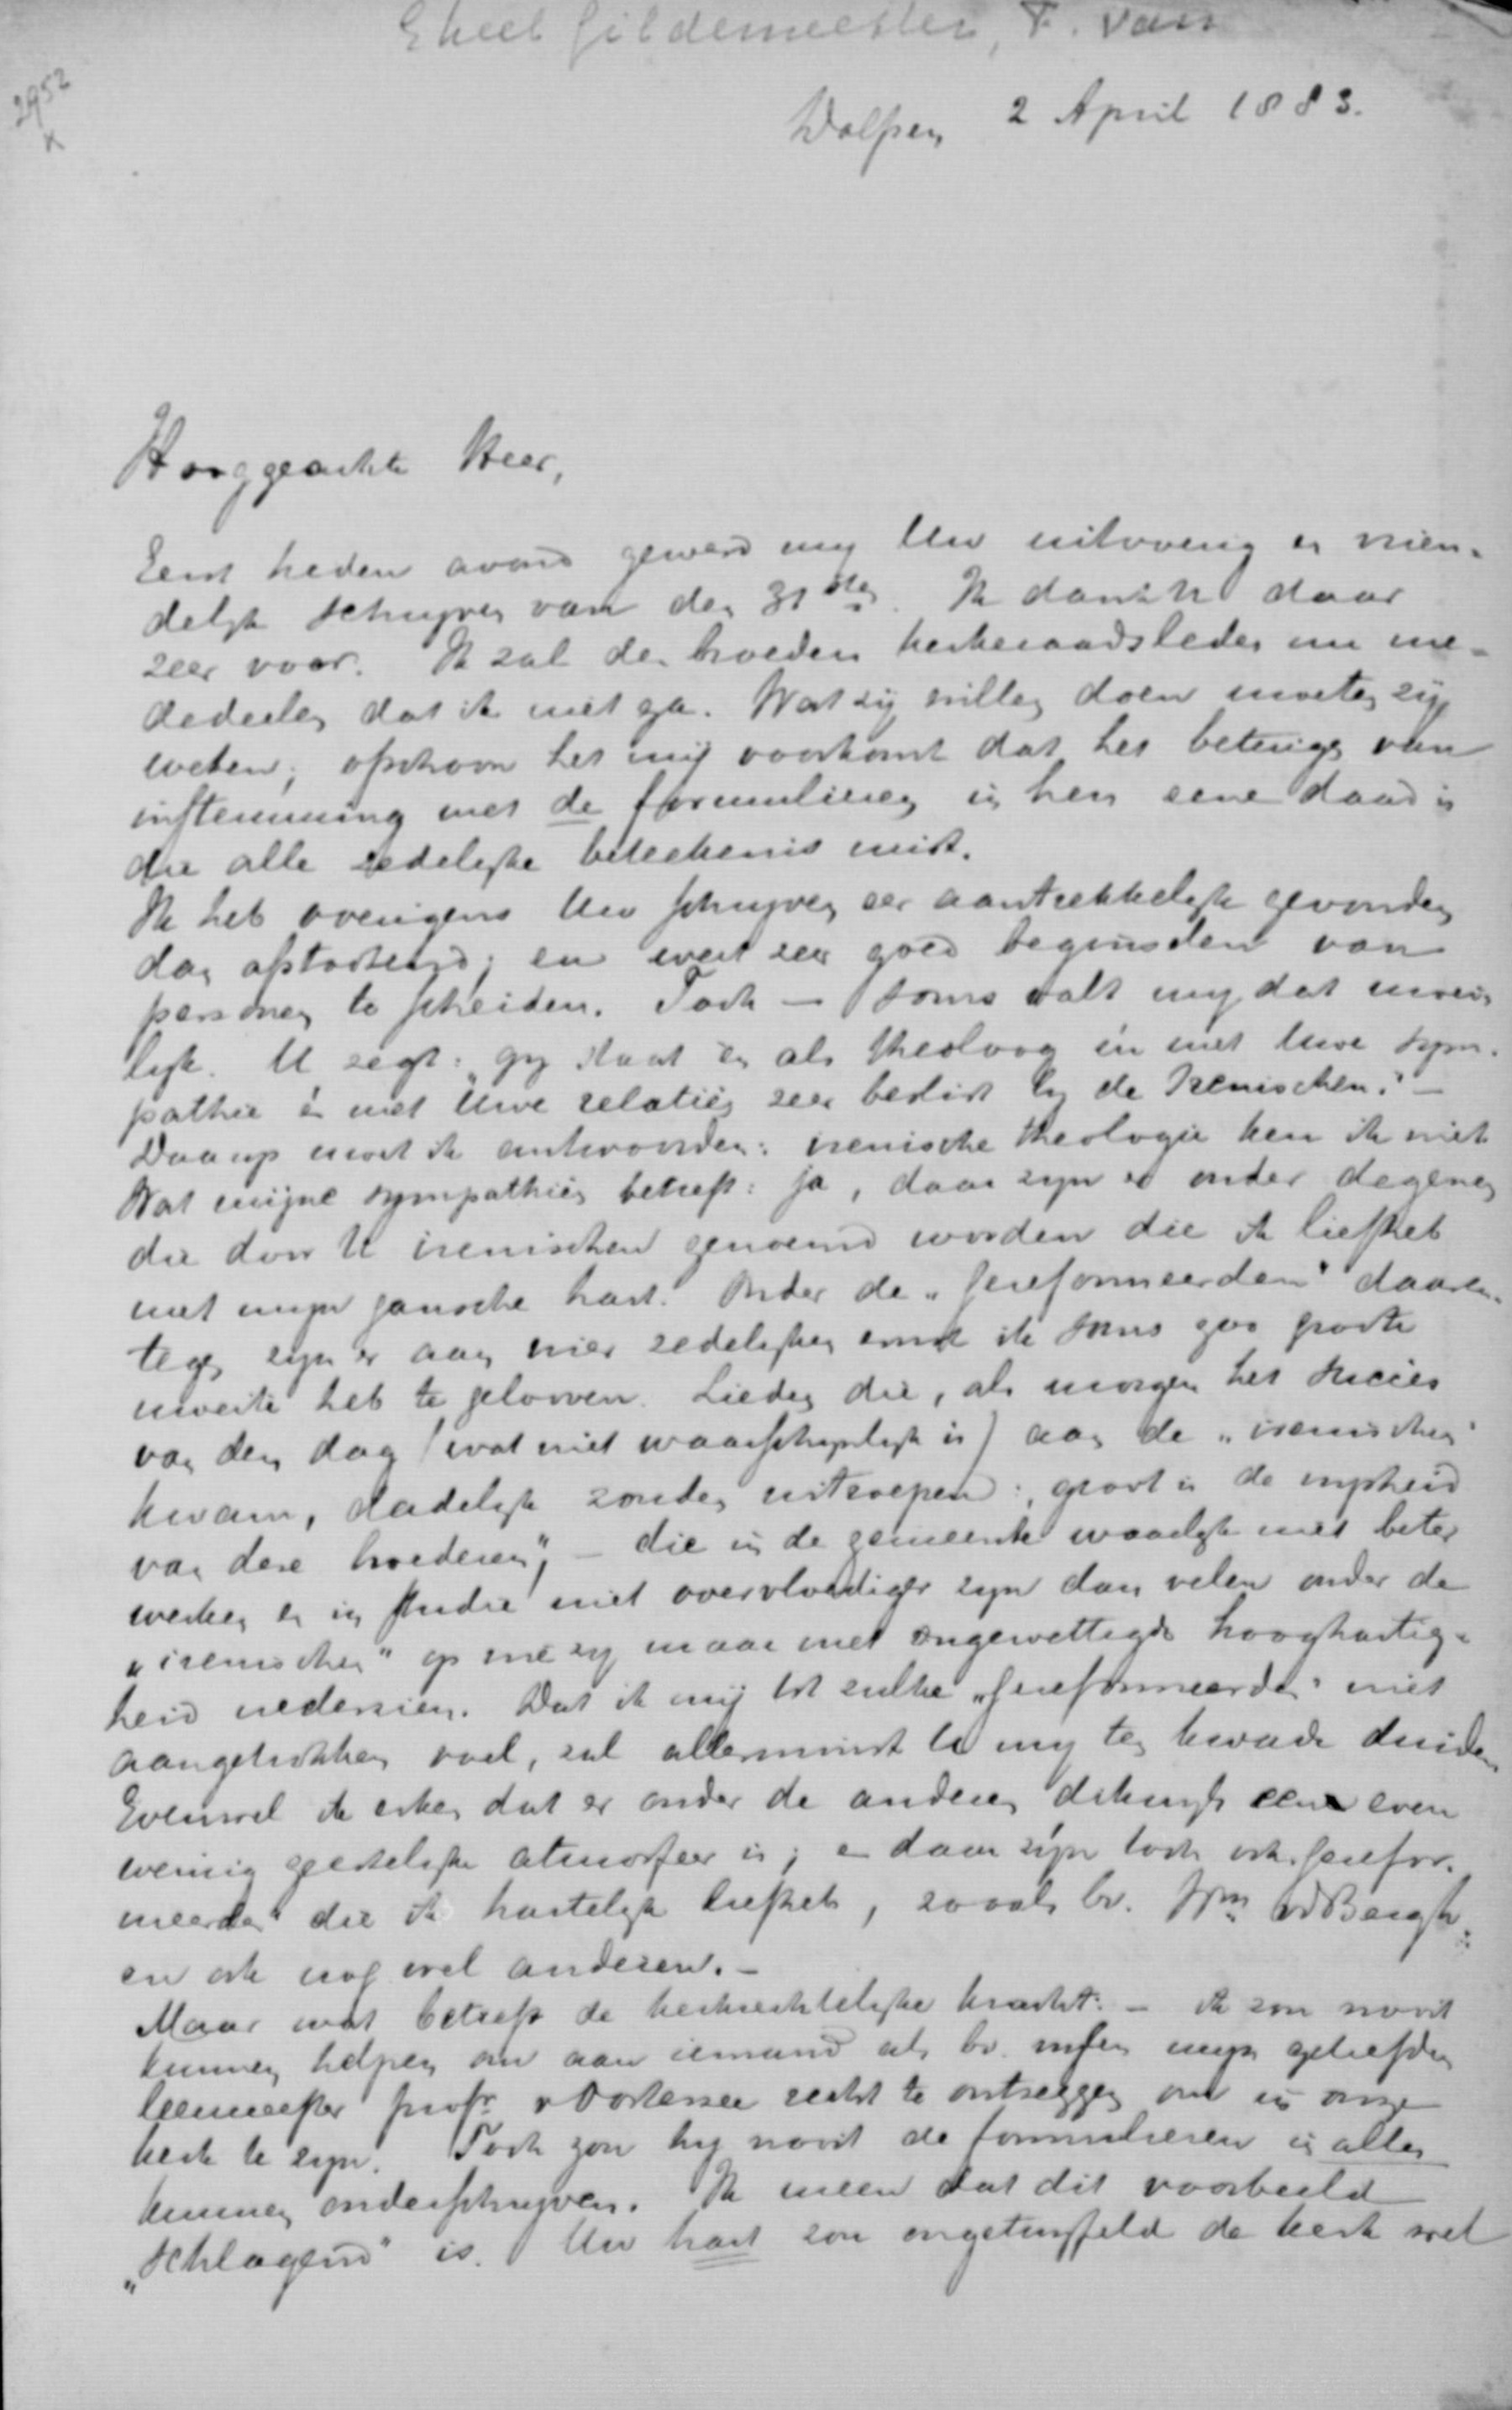 Gheel Gildemeester, F. van
2952
x
Dalfsen 2 April 1883.
Hooggeachte Heer,
Eerst heden avond gewerd mij Uw uitvoerig en vrien-
delijk schrijven van den 31sten. Ik dank U daar
zeer voor. Ik zal de broeders kerkeraadsleden nu me-
dedeelen dat ik niet ga. Wat zij willen doen moeten zij
weten; ofschoon het mij voorkomt dat het betuigen van
instemming met de formulieren in hen eene daad is
die alle zedelijke beteekenis mist.
Ik heb overigens Uw schrijven eer aantrekkelijk gevonden
dan afstootend; en weet zeer goed beginselen van
personen te scheiden. Toch - soms valt mij dat moeie-
lijk. U zegt: "gij staat en als theoloog èn met Uwe sym-
pathie èn met Uwe relatiën zeer beslist bij de Irenischen." -
Daarop moet ik antwoorden: irenische theologie ken ik niet
Wat mijne sympathiën betreft: ja, daar zijn er onder degenen
die door U irenischen genoemd worden die ik liefheb
met mijn gansche hart. Onder de "gereformeerden" daaren-
tegen zijn er aan wier zedelijken ernst ik soms zoo groote
moeite heb te gelooven. Lieden die, als morgen het succes
van den dag (wat niet waarschijnlijk is) aan de "irenischen"
kwam, dadelijk zouden uitroepen: "groot is de wijsheid
van deze broederen", - die in de gemeente waarlijk niet beter
werken en in studie niet overvloediger zijn dan velen onder de
"irenischen" op wie zij maar met ongewettigde hooghartig-
heid nederzien. Dat ik mij tot zulke "gereformeerden" niet
aangetrokken voel, zal allerminst U mij ten kwade duiden
Evenwel ik erken dat er onder de anderen dikwijls een even
weinig geestelijke atmosfeer is; en daar zijn toch ook "gerefor-
meerden" die ik hartelijk liefheb, zooals bv. Wm vd Bergh
en ook nog wel anderen. -
Maar wat betreft de kerkrechtelijke kracht: - ik zou nooit
kunnen helpen om aan iemand als bv. wijlen mijn geliefden
leermeester profr v Oosterzee recht te ontzeggen om in onze
kerk te zijn. Toch zou hij nooit de formulieren in alles
kunnen onderschrijven. Ik meen dat dit voorbeeld
"schlagend" is. Uw hart zou ongetwijfeld de kerk wel